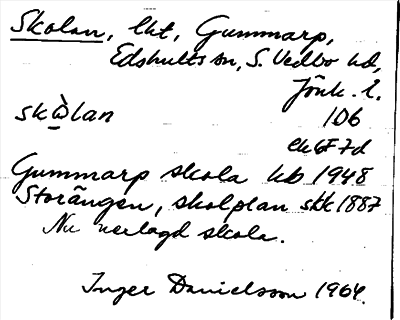 Skolan, lht, Gummarp,
Edshults sn, S. Vedbo hd,
Jönk. l.
skὼ̱lan 106
ek 6F7d
Gummarp skola kb 1948
Storängen, skolplan skk 1887
Nu nerlagd skola.
Inger Danielsson 1964.